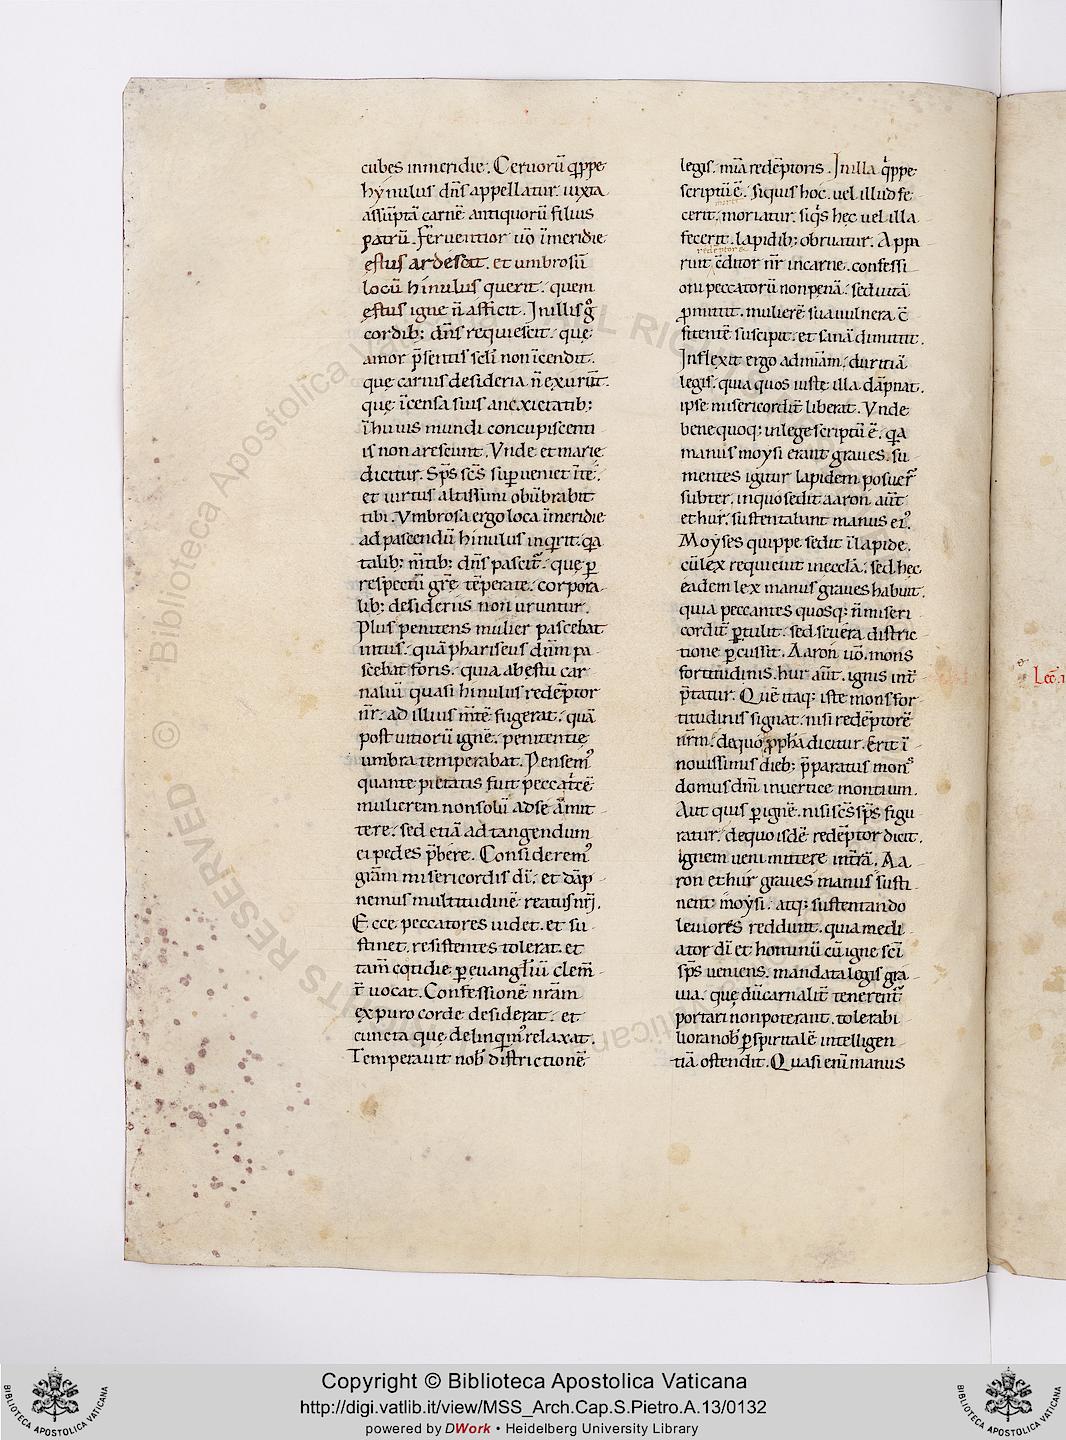 cubes inmeridie. Ceruorū q̄ppe
hẏnulus dn̄s appellatur. iuxta
assūptā carnē antiquorū filius
patrū. Feruentior ū̄o īmeridie
ęstus ardescit. et umbrosū
locū hinulus querit. quem
ęstus igne n̄ afficit. Inillis g̊
cordib; dn̄s requiescit. quę
amor p̄sentis sc̄li non īcendit.
quę carnis desideria n̄ exurūt.
quę īcensa suis anexietatib;
ī huius mundi concupiscenti
is non arescunt. Vnde et marię
dicitur. Sp̄s sc̄s suꝑueniet īte.
et uirtus altissimi obūbrabit
tibi. Vmbrosa ergo loca īmeridie
ad pascendū hinulus inqͥrit. qͣa
talib; m̄tib; dn̄s pascit᷑. quę ꝑ
respectū gr̄ę tēperate. corpora
lib; desideriis non uruntur.
Plus penitens mulier pascebat
intus. quā phariseus dn̄m pa
scebat foris. quia ab ęstu car
naliū quasi hinulus redēptor
nr̄. ad illius m̄tē fugerat. quā
post uitiorū ignē. penitentię
umbra temperabat. Pensem᷒
quante pietatis fuit peccatͥcē
mulierem nonsolū adse āmit
tere. sed etiā ad tangendum
ei pedes p̄bere. Considerem᷒
gr̄am misericordis dī. et dāp
nemus multitudinē reatus nr̄i.
Ecce peccatores uidet. et su
stinet. resistentes tolerat. et
tam̄ cotidie ꝑ euangl̄iū clem̄
t̄ uocat. Confessionē nr̄am
ex puro corde desiderat. et
cuncta quę delinqͥm᷒ relaxat.
Temperauit nob̄ districtionē
legis. mīa redēptoris. Inilla qͥppe
scriptū ē. Siquis hoc. uel illud fe
cerit. moriatur. siqͥs hęc uel illa
fecerit. lapidib; obruatur. Appa
redēptor &
ruit c̄ditor nr̄ incarne. confessi
oni peccatorū non penā. sed uitā
ꝓmittit. mulierē sua uulnera c̄
fitentē suscipit. et sanā dimittit.
Inflexit ergo ad mīam. duritiā
legis. quia quos iuste illa dāpnat.
ipse misericordit᷑ liberat. Vnde
bene quoq; inlege scriptū ē. qͣa
manus moysi erant graues. su
mentes igitur lapidem posuer̄
subter. inquo sedit aaron aūt
et hur. sustentabant manus ei᷒.
Moẏses quippe sedit īlapide.
cū lex requieuit inęccl̄a. sed hęc
eadem lex manus graues habuit.
quia peccantes quosq; n̄ miseri
cordit᷑ ꝑtulit. sed seuera distric
tione ꝑcussit. Aaron ū̄o. mons
fortitudinis. hur aūt. ignis int̄
p̄tatur. Quē itaq; iste mons for
titudinis signat. nisi redēptorē
nr̄m. dequo ꝓpha dicitur. Erit ī
nouissimis dieb; p̄paratus mons
domus dn̄i inuertice montium.
Aut quis ꝑ ignē. nisi sc̄s sp̄s figu
ratur. dequo isdē redēptor dicit.
Ignem ueni mittere int̄rā. Aa
ron et hur graues manus susti
nent moẏsi. atq; sustentando
leuiores reddunt. quia medi
ator dī et hominū cū igne sc̄i
sp̄s ueniens. mandata legis gra
uia. quę dū carnalit᷑ tenerent᷑
portari non poterant. tolerabi
liora nob̄ ꝑ spiritalē intelligen
tiā ostendit. Quasi eni manus
BIBLIOTECA APOSTOLICA VATICANA
Copyright © Biblioteca Apostolica Vaticana
http://digi.vatlib.it/view/MSS_Arch.Cap.S.Pietro.A.13/0132
powered by DWork • Heidelberg University Library
BIBLIOTECA APOSTOLICA VATICANA